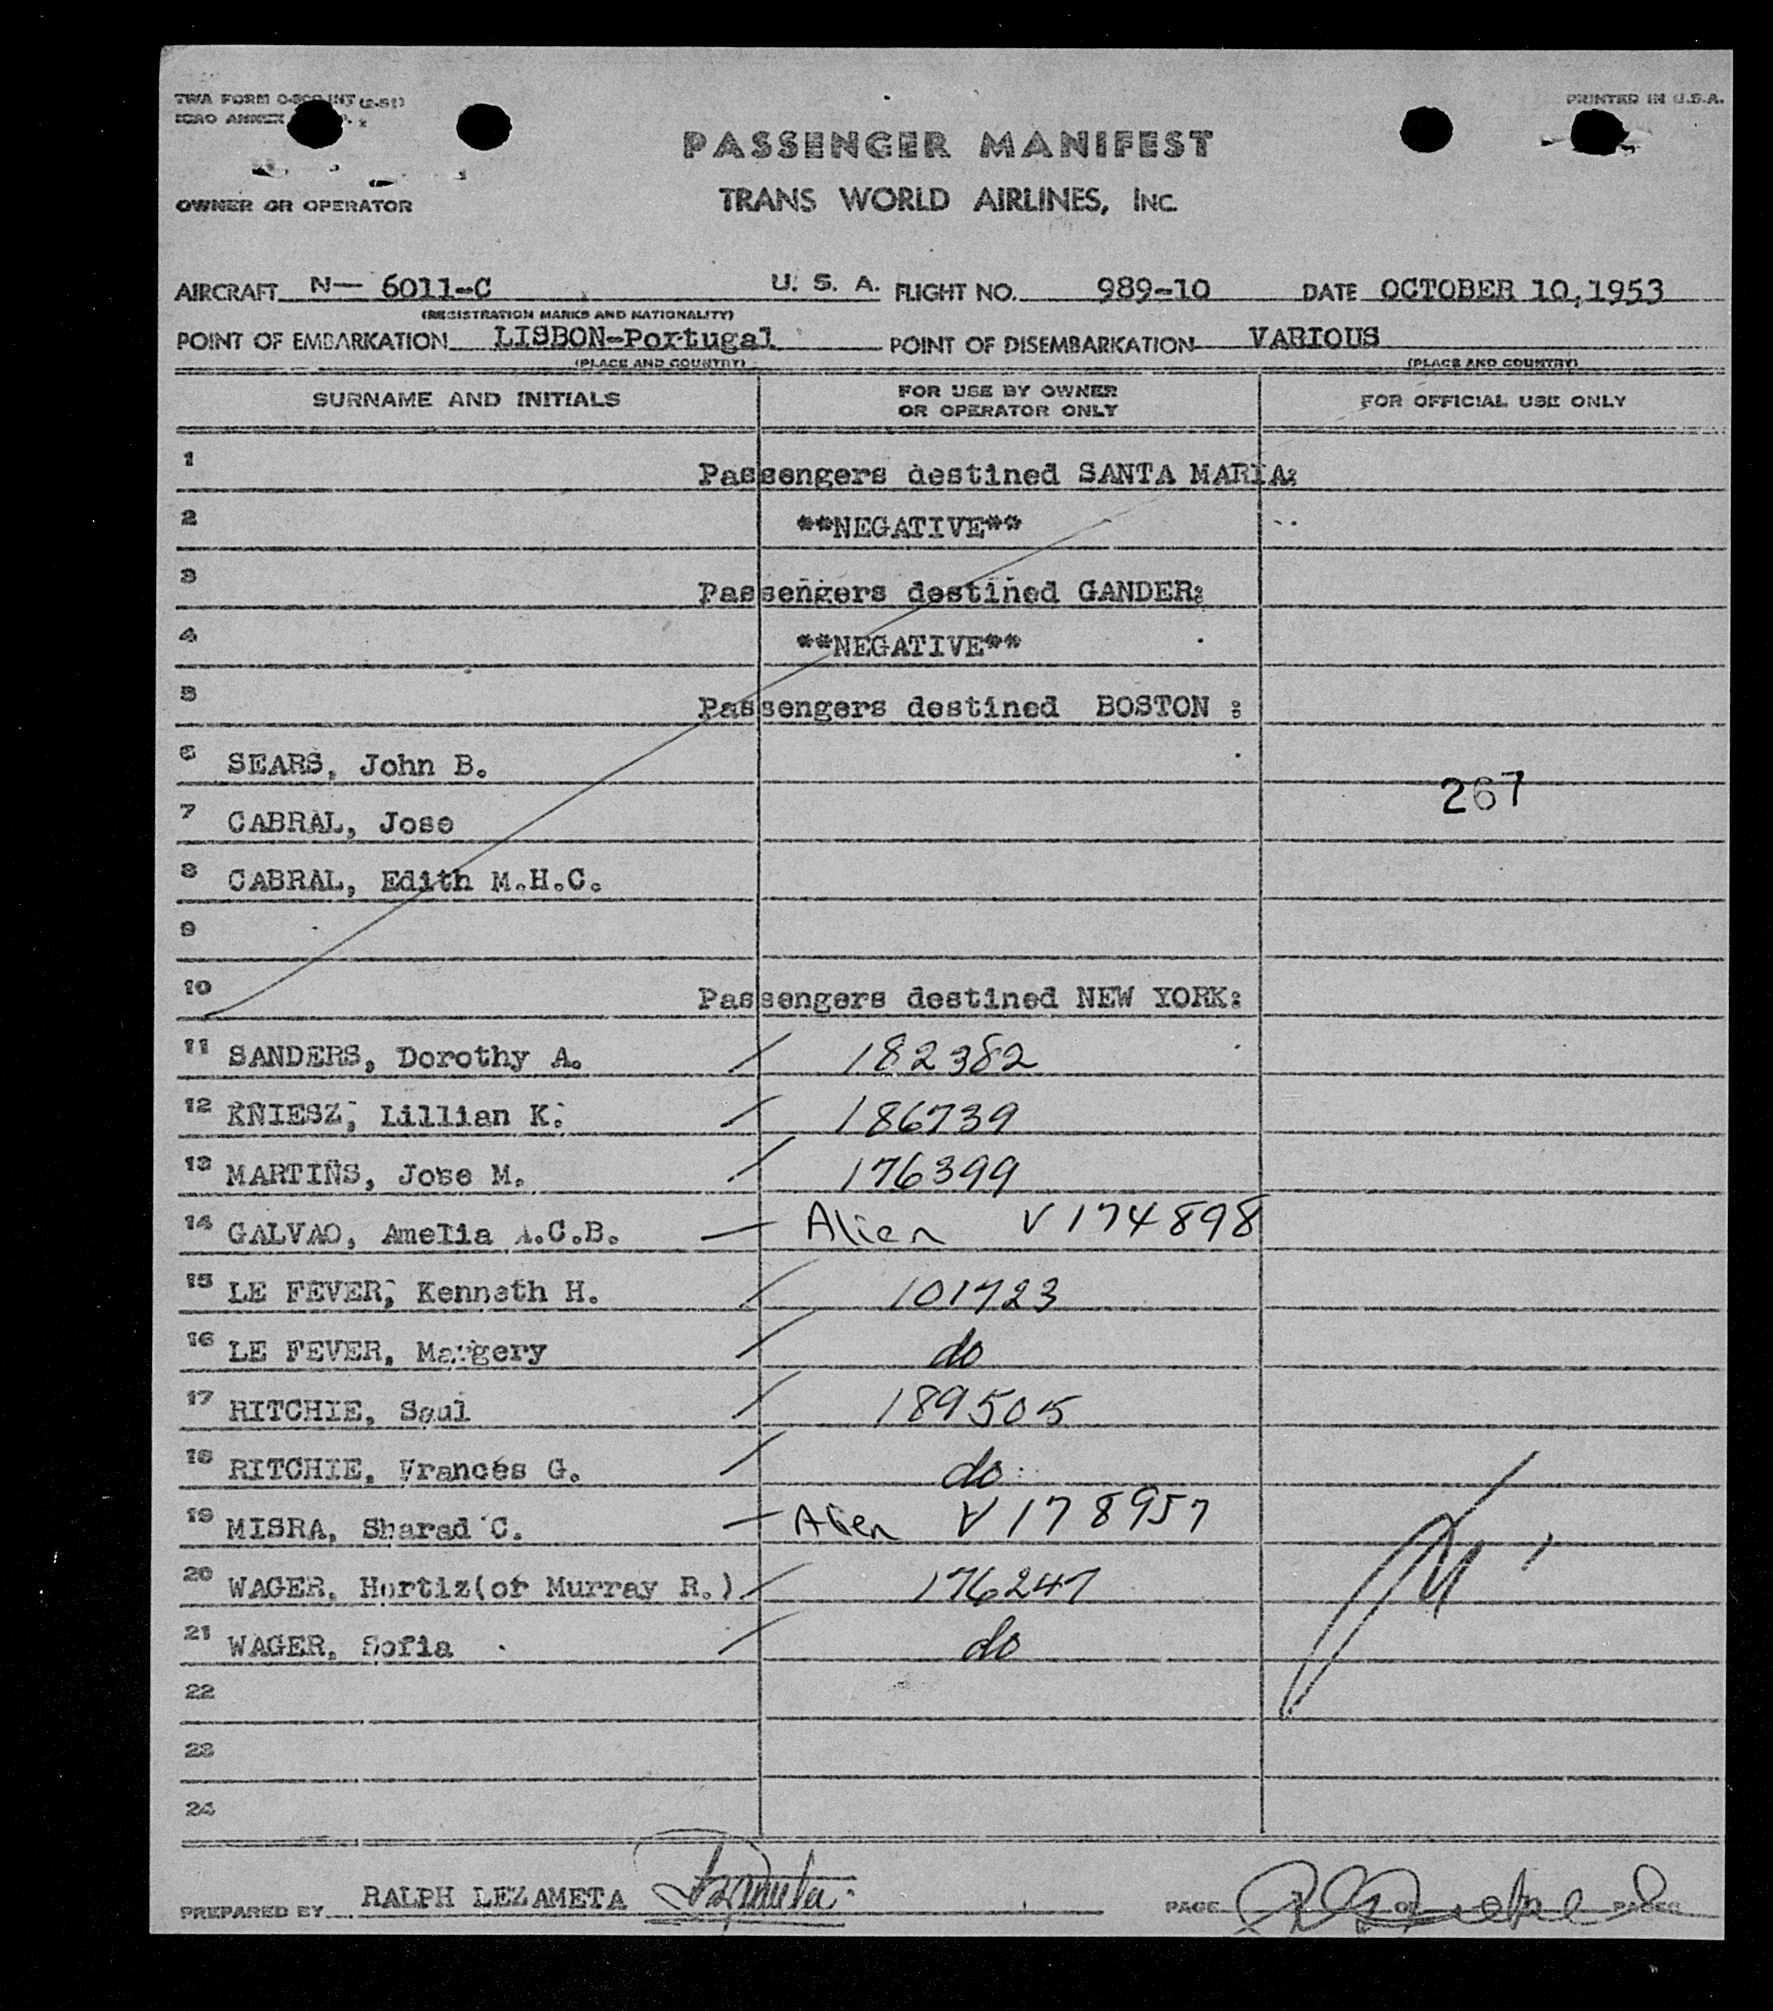 TWA FORM
ICAO ANNEX
PRINTED IN U.S.A.
PASSENGER MANIFEST
OWNER OR OPERATOR TRANS WORLD AIRLINES, INC.
AIRCRAFT N— 6011-C U. S. A. FLIGHT NO. 989-10 DATE OCTOBER 10,1953
(REGISTRATION MARKS AND NATIONALITY)
POINT OF EMBARKATION LISBON-Portugal POINT OF DISEMBARKATION VARIOUS
(PLACE AND COUNTRY) (PLACE AND COUNTRY)
SURNAME AND INITIALS FOR USE BY OWNER OR OPERATOR ONLY FOR OFFICIAL USE ONLY
1 Passengers destined SANTA MARIA:
2 **NEGATIVE**
3 Passengers destined GANDER:
4 **NEGATIVE**
5 Passengers destined BOSTON :
6 SEARS, John B.
267
7 CABRAL, Jose
8 CABRAL, Edith M.H.C.
9
10 Passengers destined NEW YORK:
11 SANDERS, Dorothy A. / 182382
12 KNIESZ, Lillian K. / 186739
13 MARTINS, Jose M. / 176399
14 GALVAO, Amelia A.C.B. — Alien V174898
15 LE FEVER, Kenneth H. / 101723
16 LE FEVER, Margery / do
17 RITCHIE, Saul / 189505
18 RITCHIE, Frances G. / do
19 MISRA, Sharad C. — Alien V178957
20 WAGER, Hortiz(or Murray R.) / 176247
21 WAGER, Sofia / do
22
23
24
PREPARED BY RALPH LEZAMETA PAGE OF PAGES